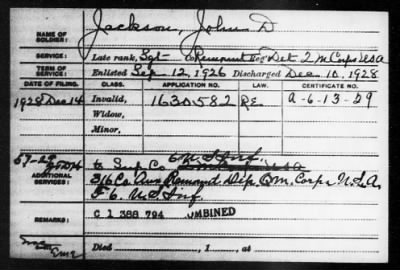 NAME OF SOLDIER: Jackson, John D
SERVICE: Late rank, Sgt Co Remount Det 2 M Corps USA
TERM OF SERVICE: Enlisted Sep 12, 1926 Discharged Dec 10, 1928
DATE OF FILING. CLASS. APPLICATION NO. LAW. CERTIFICATE NO.
1928 Dec 14 Invalid, 1630582 RE A-6-13-29
Widow,
Minor,
ADDITIONAL SERVICES: Co USA
316 Co Aux Remount Dep. Q.M. Corps U.S.A.
U.S. Inf.
REMARKS: C 1 388 794 COMBINED
Died , 1 , at